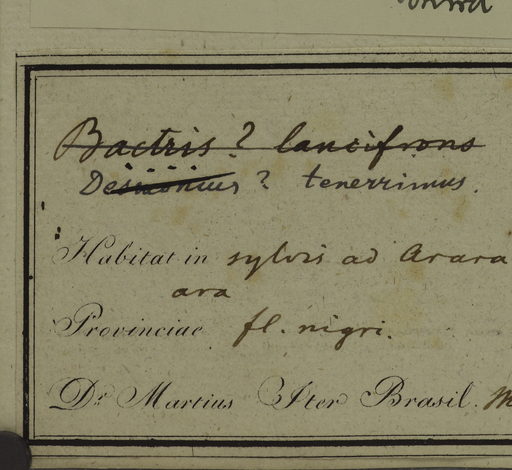 Bactris? lancifrons
Desmoncus? tenerrimus.
Habitat in sylvis ad Arara
ara
Provinciae fl. nigri.
Dr. Martius Iter Brasil.